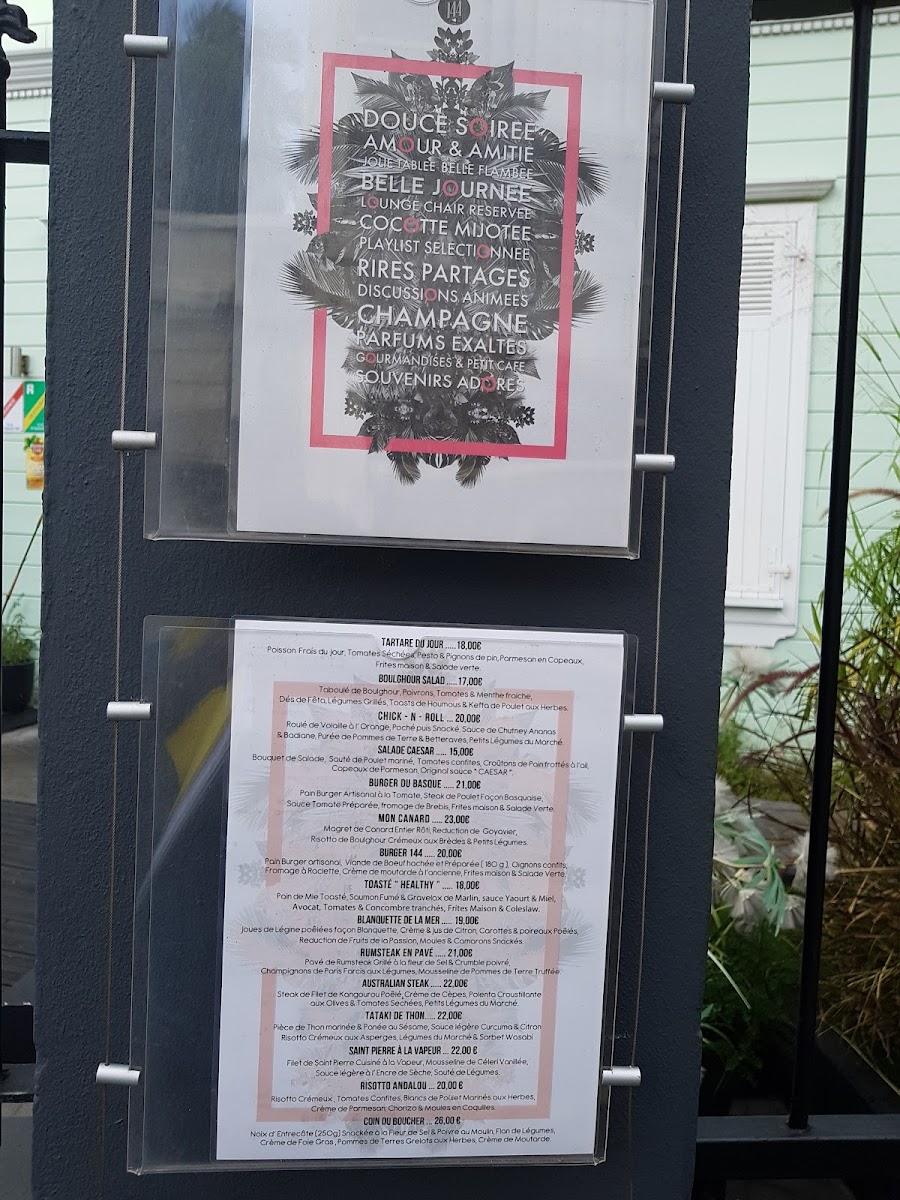 144
DOUCE SOIREE
AMOUR & AMITIE
JOLIE TABLEE BELLE FLAMBEE
BELLE JOURNEE
LOUNGE CHAIR RESERVEE
COCOTTE MIJOTEE
PLAYLIST SELECTIONNEE
RIRES PARTAGES
DISCUSSIONS ANIMEES
CHAMPAGNE
PARFUMS EXALTES
GOURMANDISES & PETIT CAFE
SOUVENIRS ADORES
R
TARTARE DU JOUR .....18,00€
Poisson Frais du jour, Tomates Séchées, Pesto & Pignons de pin, Parmesan en Copeaux,
Frites maison & Salade verte.
BOULGHOUR SALAD .....17,00€
Taboulé de Boulghour, Poivrons, Tomates & Menthe fraiche,
Dés de Fêta, Légumes Grillés, Toasts de Houmous & Kefta de Poulet aux Herbes.
CHICK - N - ROLL ... 20,00€
Roulé de Volaille à l' Orange, Poché puis Snacké, Sauce de Chutney Ananas
& Badiane, Purée de Pommes de Terre & Betteraves, Petits Légumes du Marché.
SALADE CAESAR ..... 15,00€
Bouquet de Salade, Sauté de Poulet mariné, Tomates confites, Croûtons de Pain frottés à l'ail,
Copeaux de Parmesan, Original sauce " CAESAR ".
BURGER DU BASQUE ..... 21,00€
Pain Burger Artisanal à la Tomate, Steak de Poulet Façon Basquaise,
Sauce Tomate Préparée, fromage de Brebis, Frites maison & Salade Verte.
MON CANARD ..... 23,00€
Magret de Canard Entier Rôti, Reduction de Goyavier,
Risotto de Boulghour Crémeux aux Brèdes & Petits Légumes.
BURGER 144 ..... 20,00€
Pain Burger artisanal, Viande de Boeuf hachée et Préparée ( 180 g ), Oignons confits,
Fromage à Raclette, Crème de moutarde à l'ancienne, Frites maison & Salade Verte.
TOASTÉ " HEALTHY " ..... 18,00€
Pain de Mie Toasté, Saumon Fumé & Gravelox de Marlin, sauce Yaourt & Miel,
Avocat, Tomates & Concombre tranchés, Frites Maison & Coleslaw.
BLANQUETTE DE LA MER .... 19,00€
Joues de Légine poêlées façon Blanquette, Crème & Jus de Citron, Carottes & poireaux Poêlés,
Reduction de Fruits de la Passion, Moules & Camarons Snackés.
RUMSTEAK EN PAVÉ ..... 21,00€
Pavé de Rumsteak Grillé à la fleur de Sel & Crumble poivré,
Champignons de Paris Farcis aux Légumes, Mousseline de Pommes de Terre Truffée.
AUSTRALIAN STEAK ..... 22,00€
Steak de Filet de Kangourou Poêlé, Crème de Cèpes, Polenta Croustillante
aux Olives & Tomates Sechées, Petits Légumes du Marché.
TATAKI DE THON..... 22,00€
Pièce de Thon marinée & Panée au Sésame, Sauce légère Curcuma & Citron
Risotto Crémeux aux Asperges, Légumes du Marché & Sorbet Wasabi
SAINT PIERRE À LA VAPEUR ... 22,00 €
Filet de Saint Pierre Cuisiné à la Vapeur, Mousseline de Céleri Vanillée,
Sauce légère à l' Encre de Sèche, Sauté de Légumes.
RISOTTO ANDALOU ... 20,00 €
Risotto Crémeux , Tomates Confites, Blancs de Poulet Marinés aux Herbes,
Crème de Parmesan, Chorizo & Moules en Coquilles.
COIN DU BOUCHER ... 26,00 €
Noix d' Entrecôte (250g) Snackée à la Fleur de Sel & Poivre au Moulin, Flan de Légumes,
Crème de Foie Gras , Pommes de Terres Grelots aux Herbes, Crème de Moutarde.